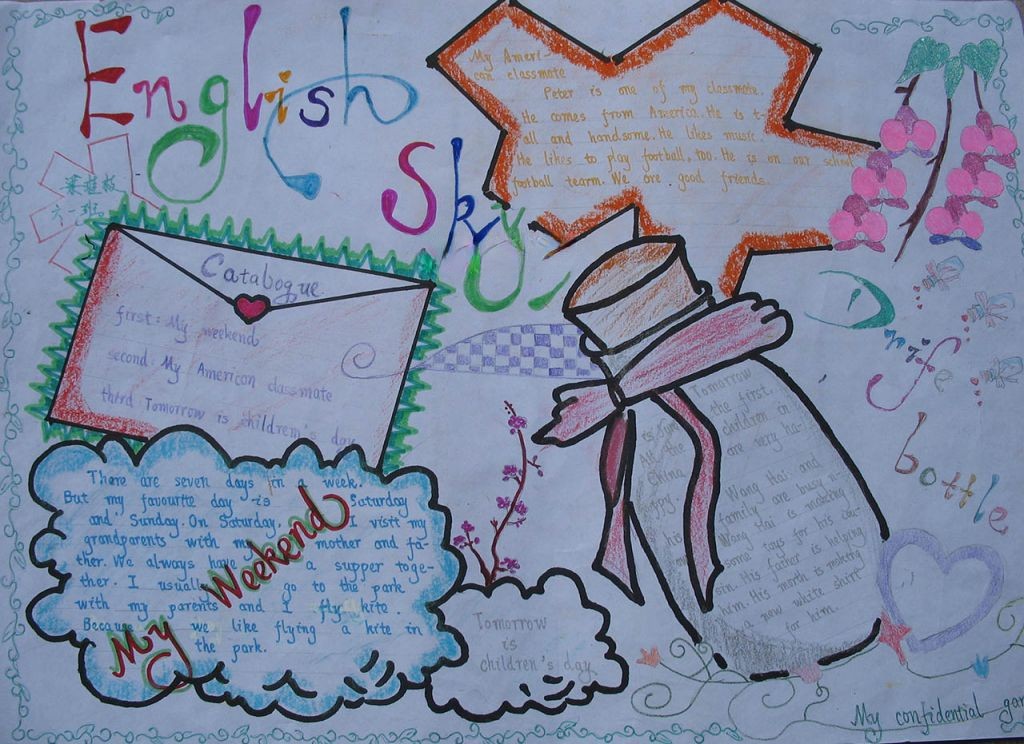 English
Sky
My Ameri-
can classmate
Peter is one of my classmate.
He comes from America. He is t-
all and handsome. He likes music.
He likes to play football, too. He is on our school
football tearm. We are good friends.
六一班
Catabogue
first: My weekend
second: My American classmate
third Tomorrow is children's day
There are seven days in a week.
But my favourite day is Saturday
and Sunday. On Saturday. I visit my
grandparents with my mother and fa-
ther. We always have a supper toge-
ther. I usually go to the park
with my parents and I fly kite.
Because we like flying a kite in
the park.
My Weekend
Tomorrow
is
children's day
Tomorrow
is June the first.
All the children in
China are very ha-
ppy. Wang Hai and
his family are busy
Wang Hai is making
some toys for his cou-
sin. His father is helping
him. His month is making
a new white shirt
for him.
bottle
My confidential gar